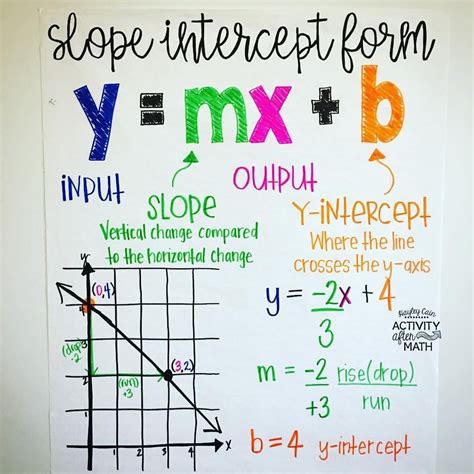 slope intercept form
y = mx + b
INPUT
OUTPUT
SLOPE
Vertical change compared
to the horizontal change
Y-INTERCEPT
Where the line
crosses the y-axis
y = -2x + 4
3
Kayley Cain
ACTIVITY
after
MATH
m = -2 rise(drop)
+3 run
b = 4 y-intercept
y
(0,4)
4
3
(drop)
-2
(3,2)
2
(run)
+3
1
x
1 2 3 4